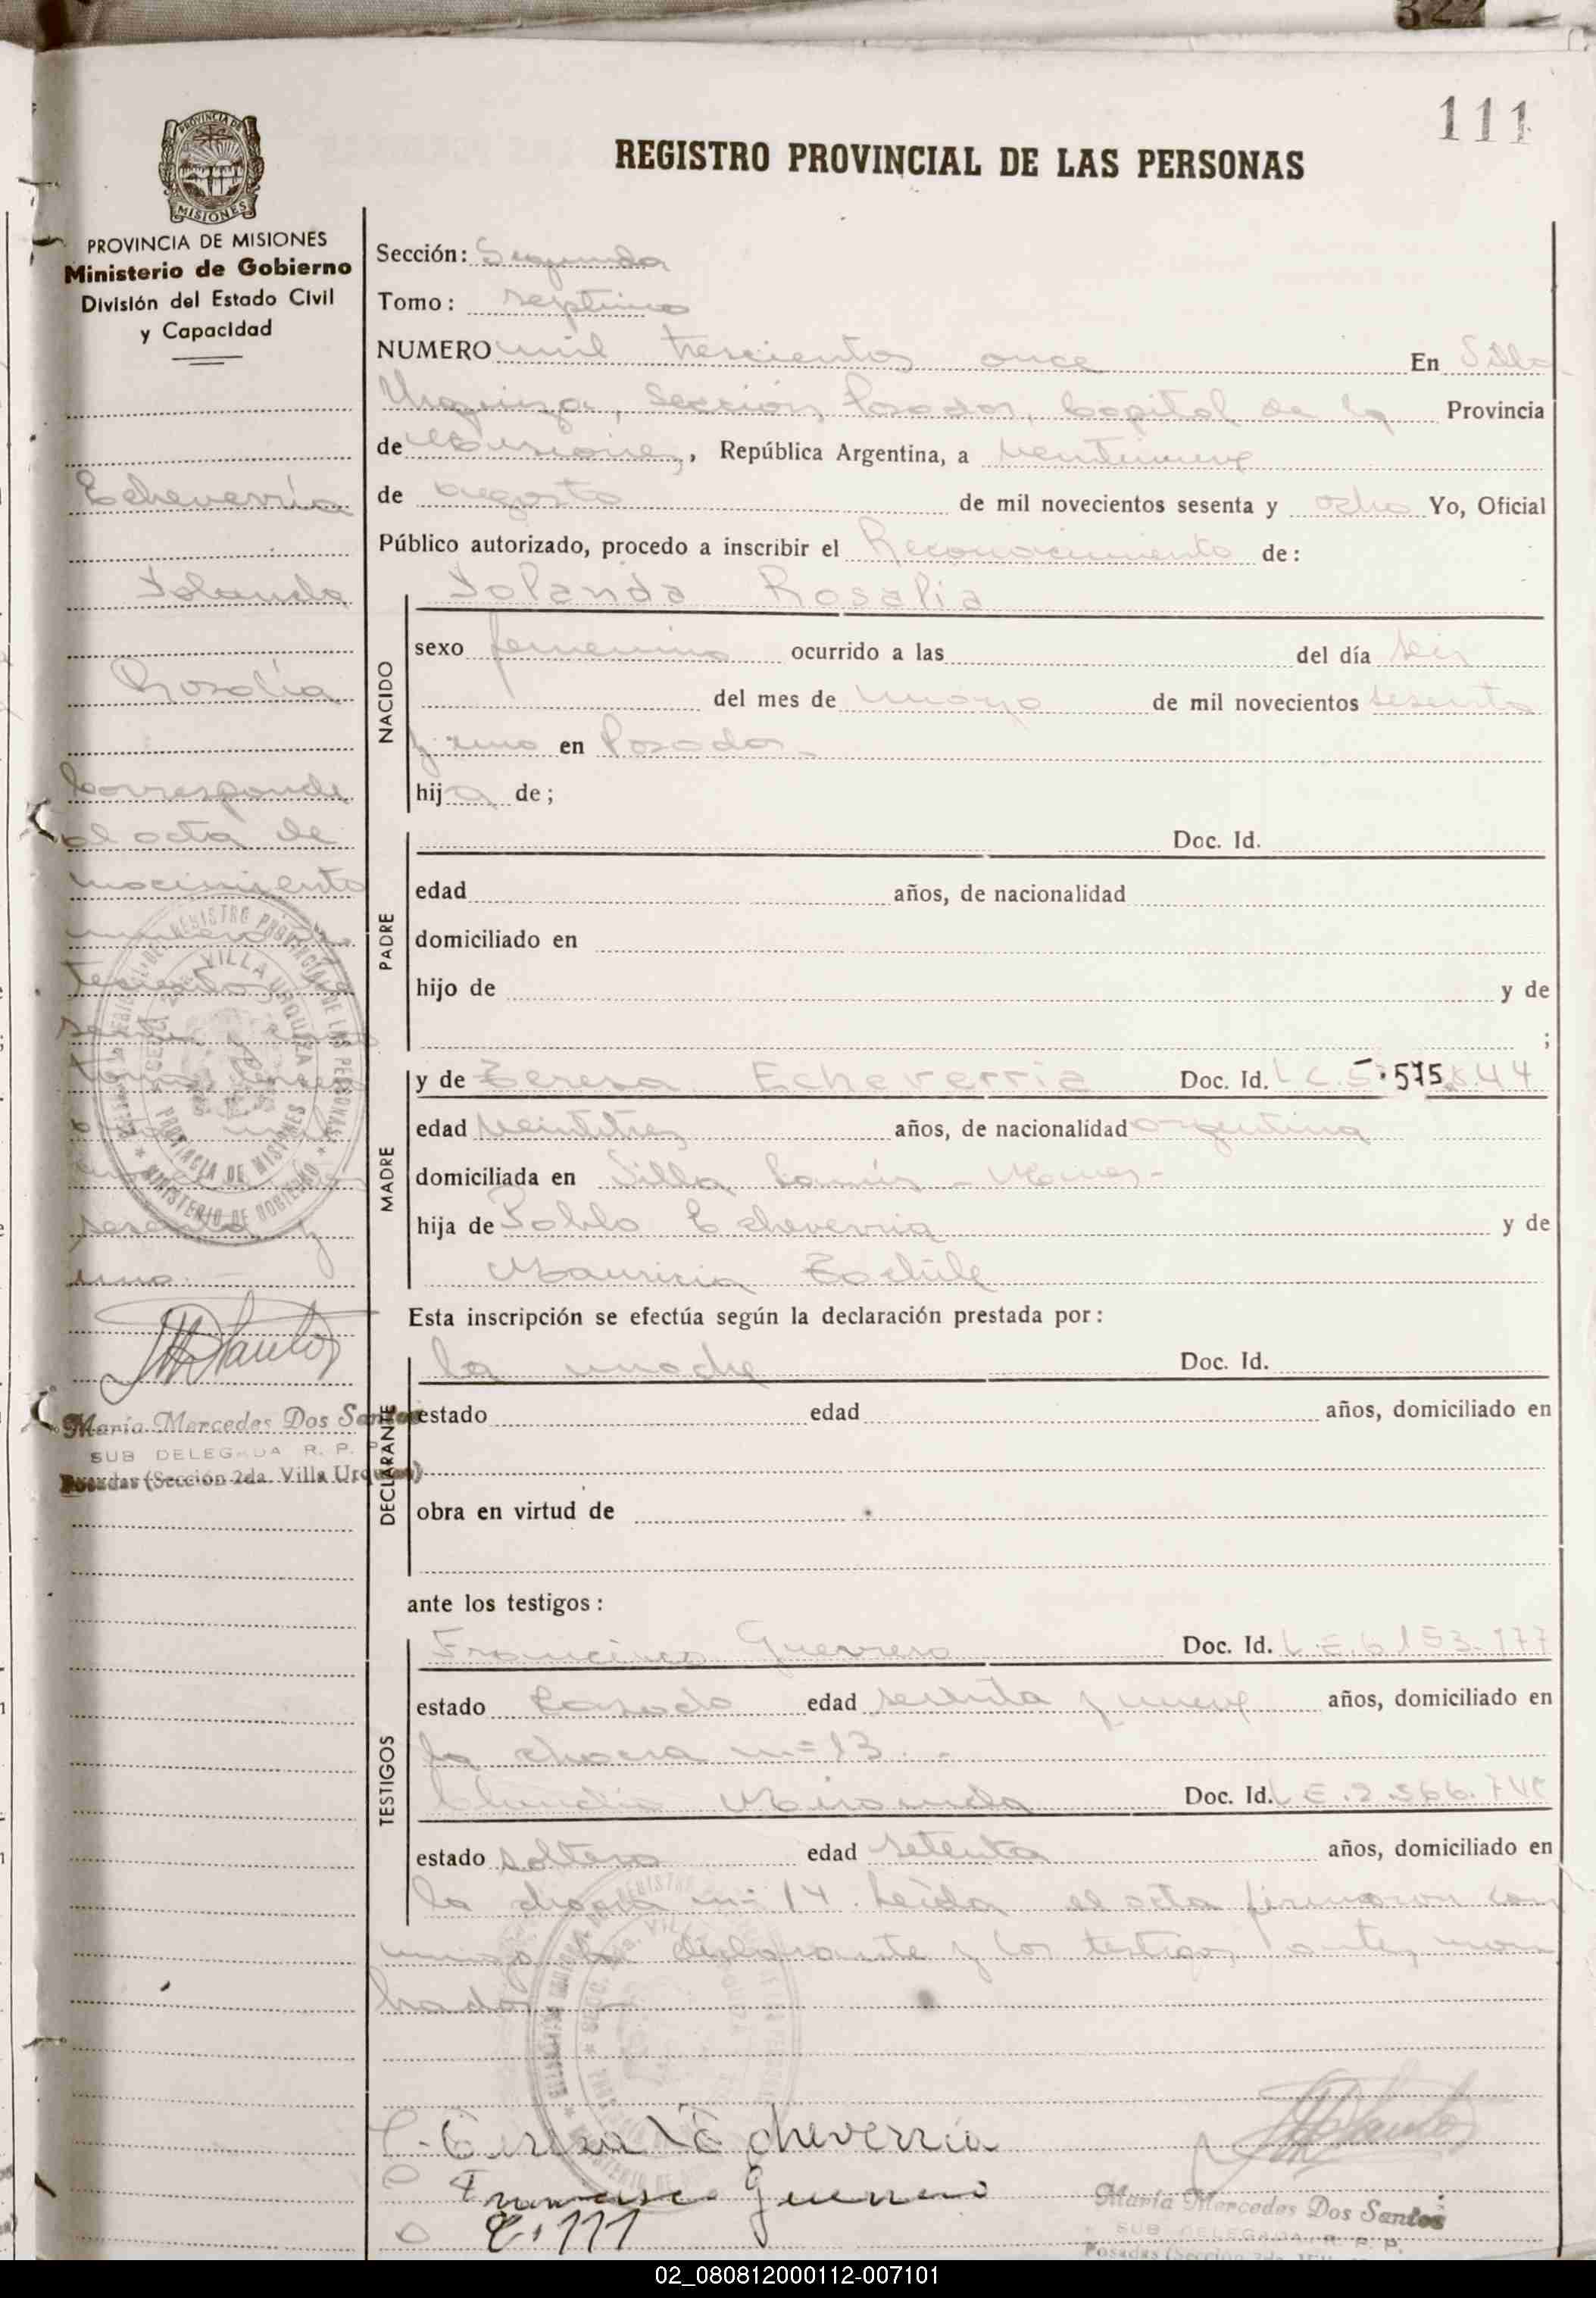 322
111
PROVINCIA DE
MISIONES
REGISTRO PROVINCIAL DE LAS PERSONAS
PROVINCIA DE MISIONES
Ministerio de Gobierno
División del Estado Civil
y Capacidad
Echeverría
Iolanda
Rosalía
Corresponde
al acta de
nacimiento
numero
tomo
sesenta y
uno.
María Mercedes Dos Santos
SUB DELEGADA R. P. P.
Posadas (Sección 2da. Villa Urquiza)
Sección: Segunda
Tomo: septimo
NUMERO mil trescientos once En Villa
Urquiza, Sección Posadas, Capital de la Provincia
de Misiones, República Argentina, a veintinueve
de agosto de mil novecientos sesenta y ocho Yo, Oficial
Público autorizado, procedo a inscribir el Reconocimiento de:
NACIDO
Iolanda Rosalia
sexo femenino ocurrido a las del día seis
del mes de marzo de mil novecientos sesenta
y uno en Posadas
hija de;
PADRE
Doc. Id.
edad años, de nacionalidad
domiciliado en
hijo de y de
;
MADRE
y de Teresa Echeverria Doc. Id. L.C. 5.575.844
edad veintitres años, de nacionalidad argentina
domiciliada en Villa Lanús - Mnes-
hija de Pablo Echeverria y de
Mauricia
Esta inscripción se efectúa según la declaración prestada por:
DECLARANTE
la madre Doc. Id.
estado edad años, domiciliado en
obra en virtud de
ante los testigos:
TESTIGOS
Francisco Guerrero Doc. Id. L.E. 6.153.177
estado Casado edad sesenta y nueve años, domiciliado en
la chacra nº 13.-
Claudio Miranda Doc. Id. L.E. 2.566.
estado soltero edad setenta años, domiciliado en
la chacra nº 14. Leída el acta firmaron con
migo la declarante y los testigos antes nom
brados.
Teresa Echeverria
Francisco Guerrero
María Mercedes Dos Santos
SUB DELEGADA R. P. P.
02_080812000112-007101